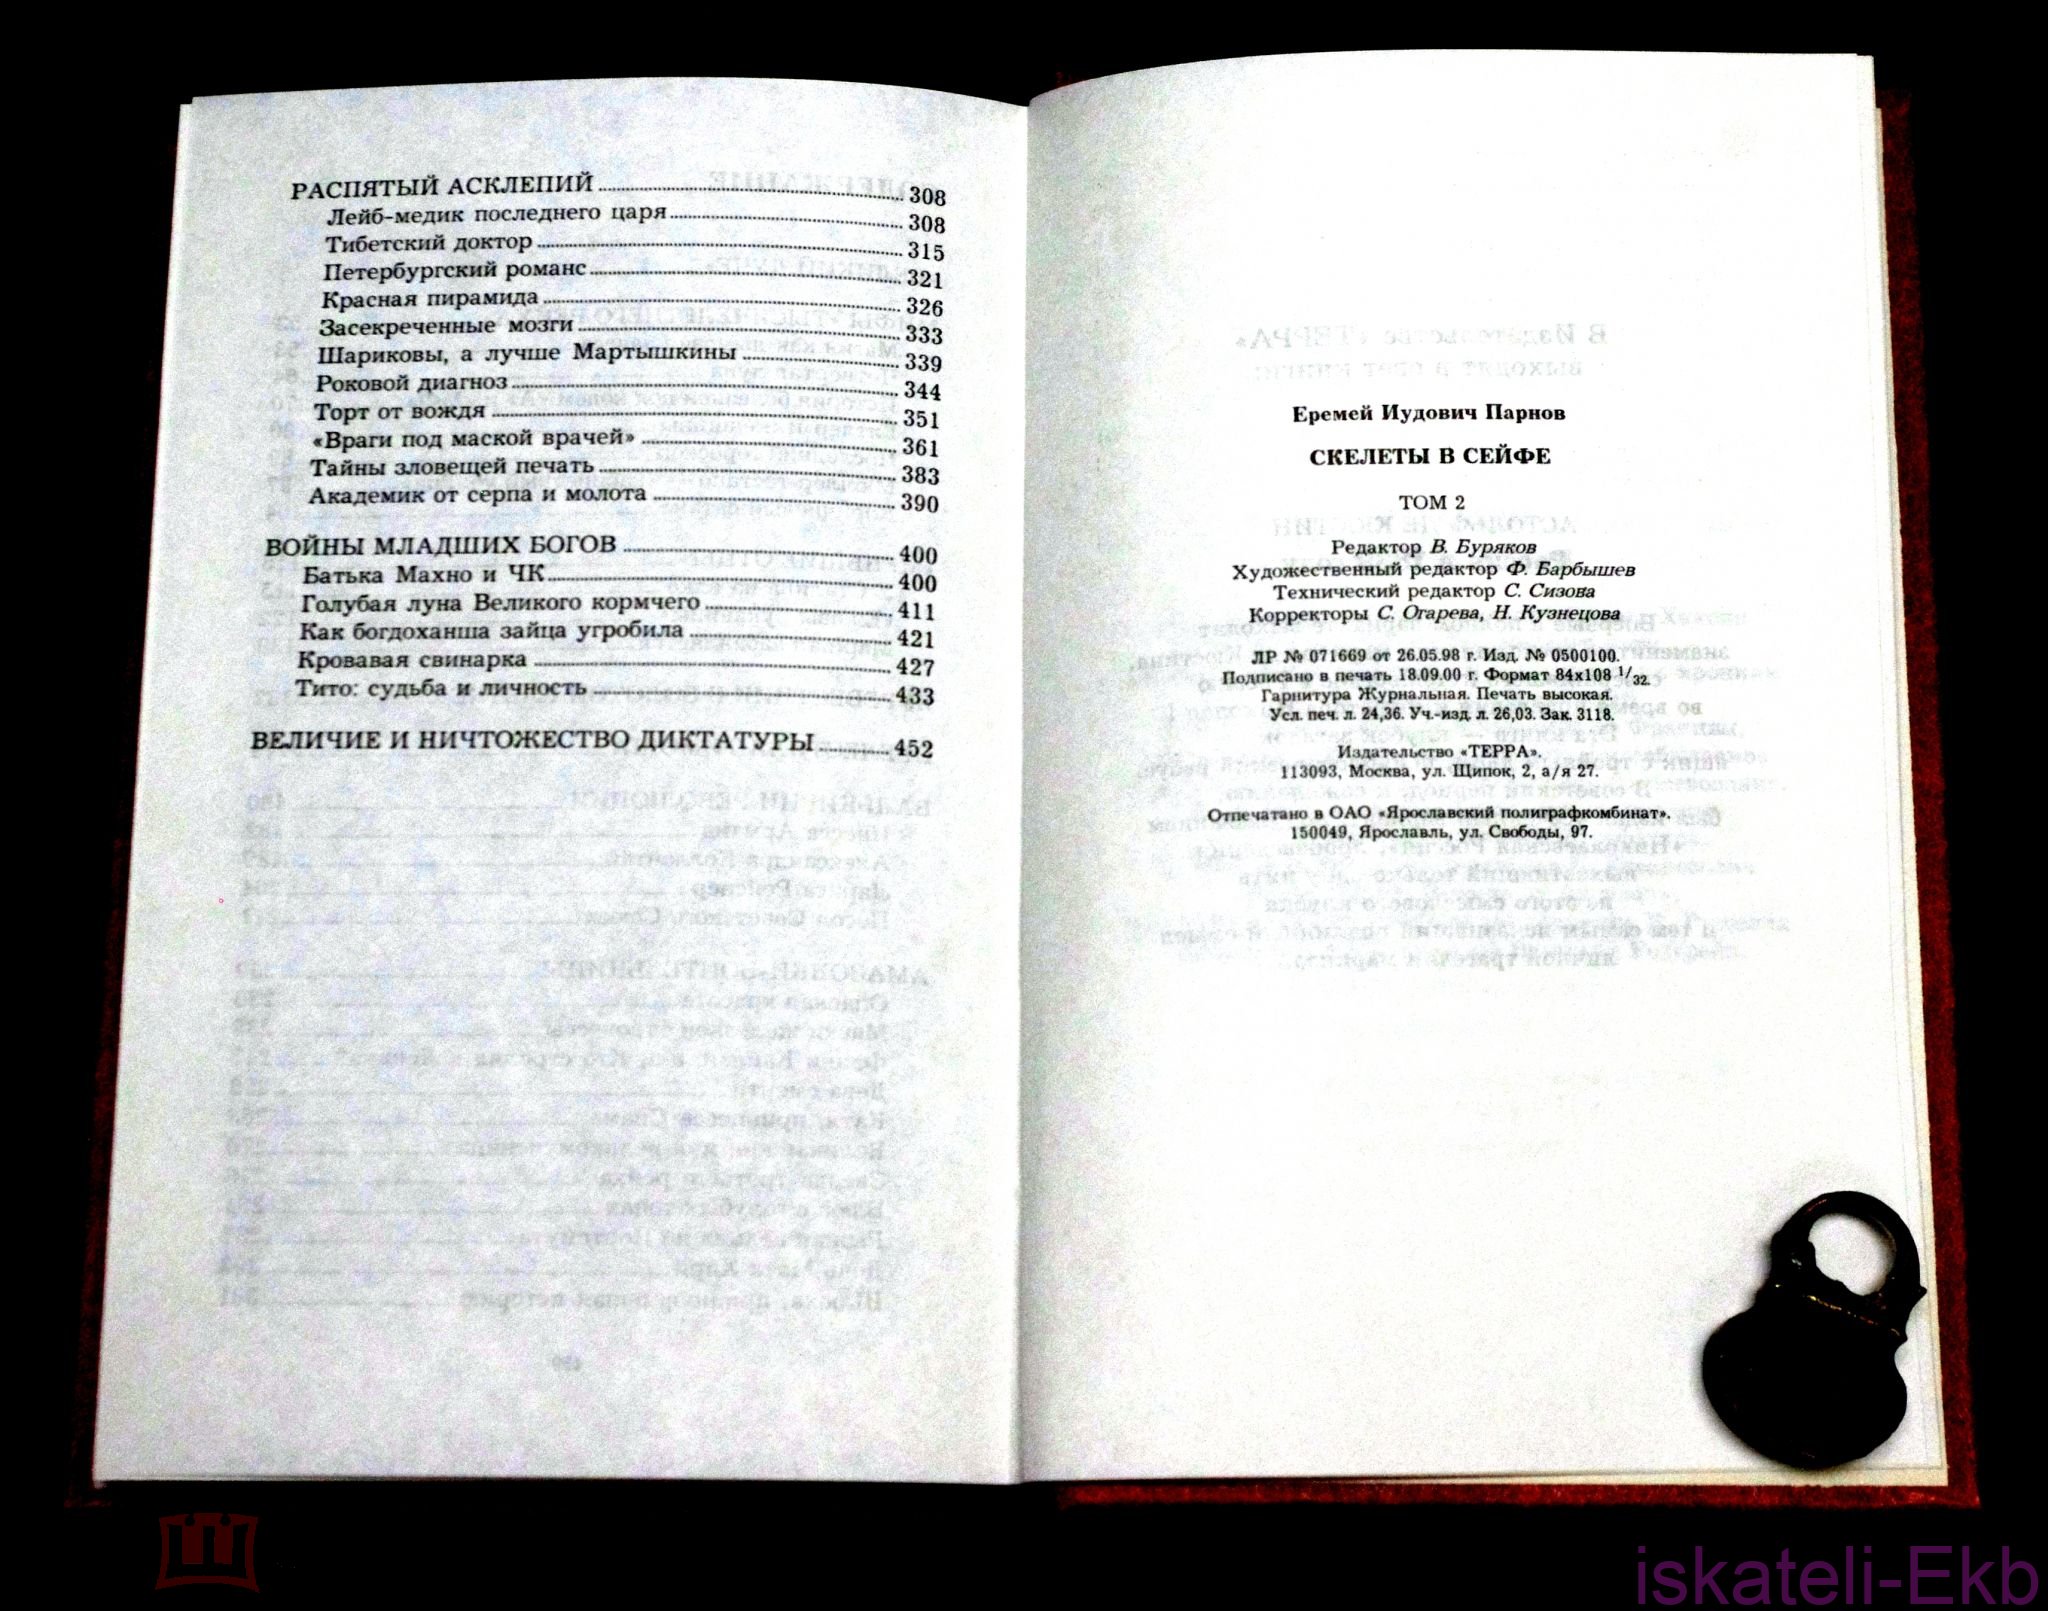 РАСПЯТЫЙ АСКЛЕПИЙ 308
Лейб-медик последнего царя 308
Тибетский доктор 315
Петербургский романс 321
Красная пирамида 326
Засекреченные мозги 333
Шариковы, а лучше Мартышкины 339
Роковой диагноз 344
Торт от вождя 351
«Враги под маской врачей» 361
Тайны зловещей печать 383
Академик от серпа и молота 390
ВОЙНЫ МЛАДШИХ БОГОВ 400
Батька Махно и ЧК 400
Голубая луна Великого кормчего 411
Как богдоханша зайца угробила 421
Кровавая свинарка 427
Тито: судьба и личность 433
ВЕЛИЧИЕ И НИЧТОЖЕСТВО ДИКТАТУРЫ 452
Еремей Иудович Парнов
СКЕЛЕТЫ В СЕЙФЕ
ТОМ 2
Редактор В. Буряков
Художественный редактор Ф. Барбышев
Технический редактор С. Сизова
Корректоры С. Огарева, Н. Кузнецова
ЛР № 071669 от 26.05.98 г. Изд. № 0500100.
Подписано в печать 18.09.00 г. Формат 84х108 1/32.
Гарнитура Журнальная. Печать высокая.
Усл. печ. л. 24,36. Уч.-изд. л. 26,03. Зак. 3118.
Издательство «ТЕРРА».
113093, Москва, ул. Щипок, 2, а/я 27.
Отпечатано в ОАО «Ярославский полиграфкомбинат».
150049, Ярославль, ул. Свободы, 97.
iskateli-Ekb